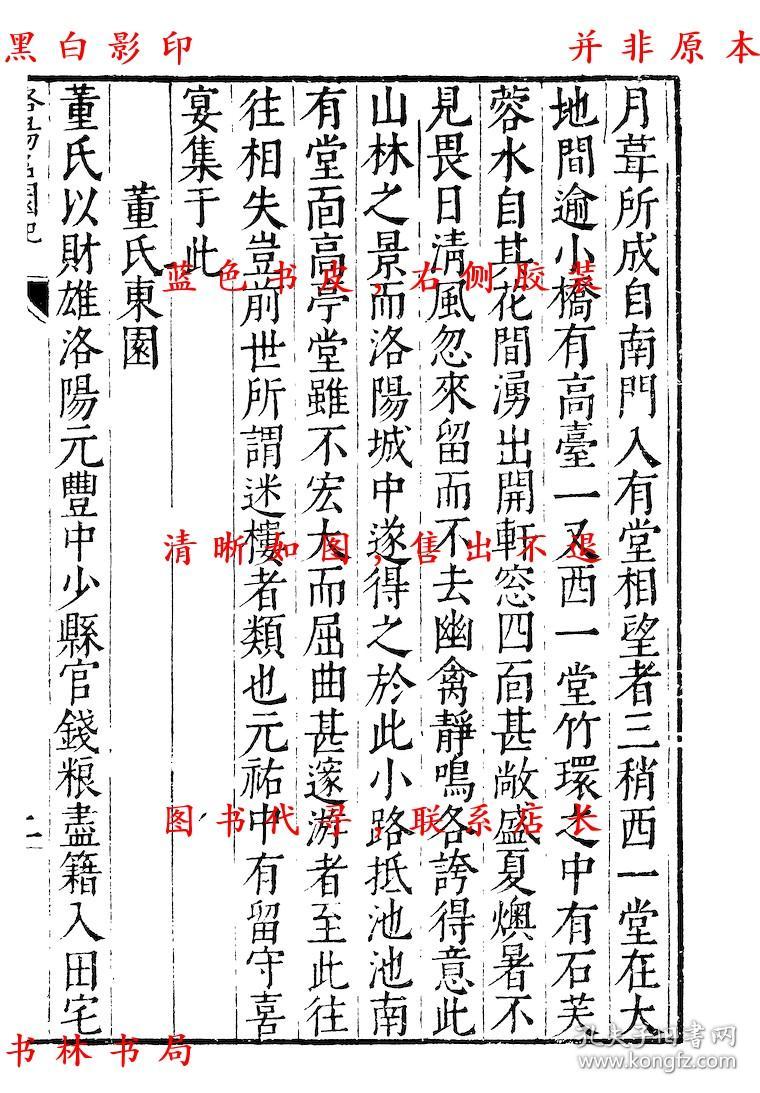 黑白影印
并非原本
月葺所成自南門入有堂相望者三稍西一堂在大
地間逾小橋有高臺一又西一堂竹環之中有石芙
蓉水自其花間湧出開軒窓四面甚敞盛夏燠暑不
見畏日清風忽來留而不去幽禽靜鳴各誇得意此
山林之景而洛陽城中遂得之於此小路抵池池南
有堂面高亭堂雖不宏大而屈曲甚邃游者至此往
往相失豈前世所謂迷樓者類也元祐中有留守喜
宴集于此
董氏東園
董氏以財雄洛陽元豐中少縣官錢粮盡籍入田宅
洛陽名園記
二
蓝色书皮，右侧胶装
清晰如图，售出不退
图书代寻，联系店长
书林书局
孔夫子旧书网
www.kongfz.com